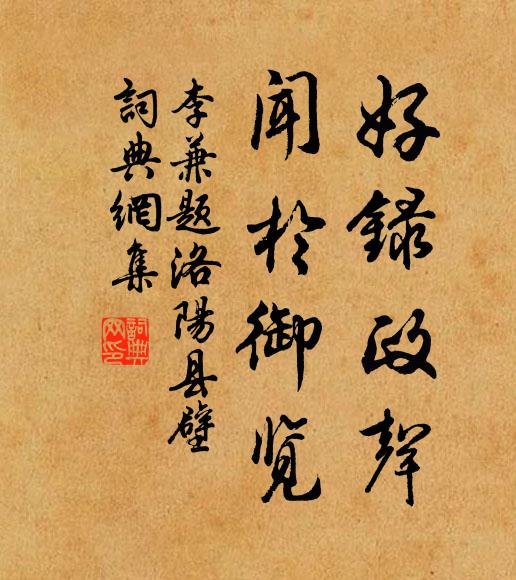 好録政聲
闻於御览
李兼题洛陽县壁
詞典網集
詞典